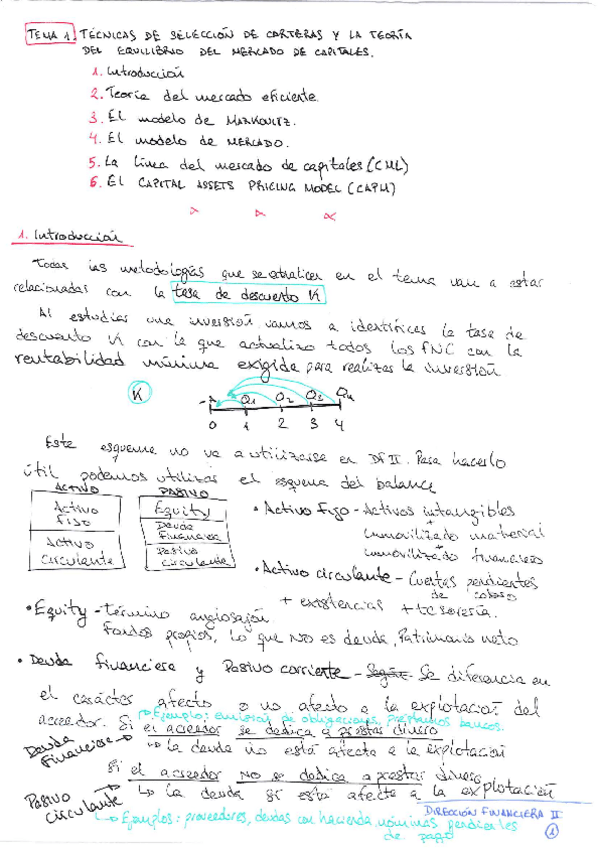 TEMA 1. TÉCNICAS DE SELECCIÓN DE CARTERAS Y LA TEORÍA
DEL EQUILIBRIO DEL MERCADO DE CAPITALES.
1. Introducción
2. Teoría del mercado eficiente.
3. El modelo de MARKOWITZ.
4. El modelo de MERCADO.
5. La línea del mercado de capitales (CML)
6. El CAPITAL ASSETS PRICING MODEL (CAPM)
1. Introducción
Todas las metodologías que se analicen en el tema van a estar
relacionadas con la tasa de descuento K
Al estudiar una inversión vamos a identificar la tasa de
descuento K con la que actualizo todos los FNC con la
rentabilidad mínima exigida para realizar la inversión
K -A Q1 Q2 Q3 Q4
0 1 2 3 4
Este esquema no va a utilizarse en DF II. Para hacerlo
útil podemos utilizar el esquema del balance
ACTIVO PASIVO
Activo Fijo
Activo circulante
Equity
Deuda Financiera
Pasivo circulante
• Activo Fijo - Activos intangibles
+
inmovilizado material
+
inmovilizado financiero
• Activo circulante - Cuentas pendientes
de cobro
+ existencias + tesorería.
• Equity - término anglosajón
Fondos propios, lo que no es deuda, Patrimonio neto
• Deuda financiera y Pasivo corriente - Según Se diferencia en
el carácter afecto o no afecto a la explotación del
acreedor.
Ejemplo: emisión de obligaciones, préstamos bancos.
Si el acreedor se dedica a prestar dinero
Deuda Financiera → la deuda no está afecta a la explotación
Si el acreedor no se dedica a prestar dinero
Pasivo circulante → La deuda sí está afecta a la explotación
Ejemplos: proveedores, deudas con hacienda, nóminas pendientes
de pago
DIRECCIÓN FINANCIERA II
1